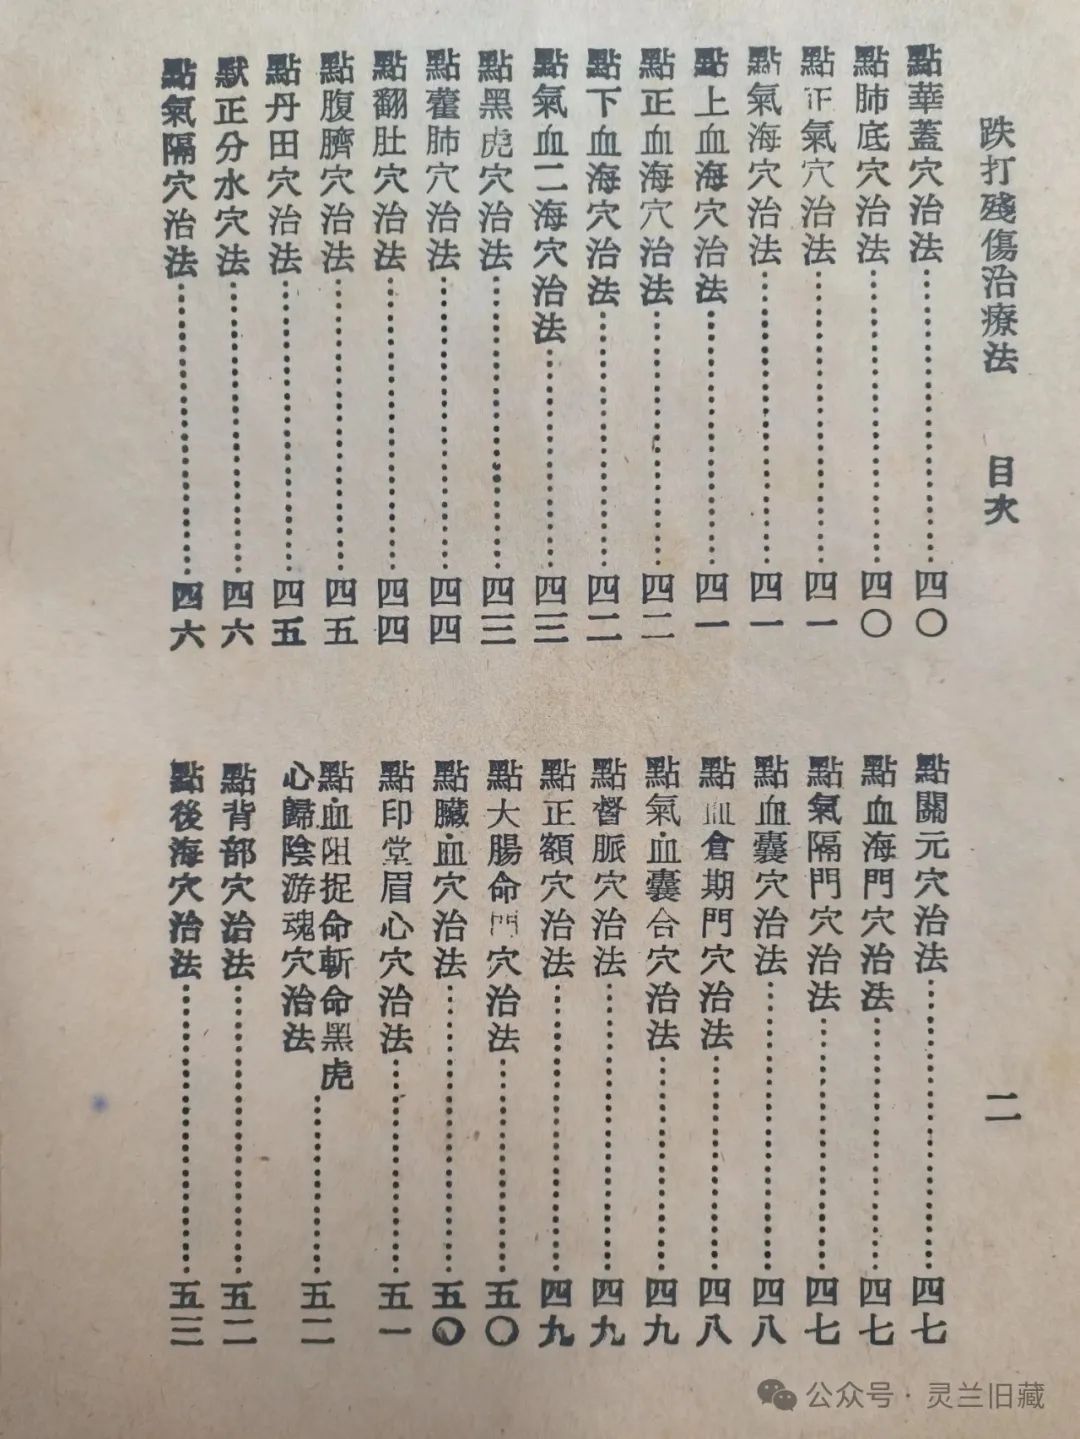 跌打殘傷治療法　目次　二
點華蓋穴治法……四〇
點肺底穴治法……四〇
點正氣穴治法……四一
點氣海穴治法……四一
點上血海穴治法……四一
點正血海穴治法……四二
點下血海穴治法……四二
點氣血二海穴治法……四三
點黑虎穴治法……四三
點藿肺穴治法……四四
點翻肚穴治法……四四
點腹臍穴治法……四五
點丹田穴治法……四五
默正分水穴法……四六
點氣隔穴治法……四六
點關元穴治法……四七
點血海門穴治法……四七
點氣隔門穴治法……四七
點血囊穴治法……四八
點血倉期門穴治法……四八
點氣血囊合穴治法……四九
點督脈穴治法……四九
點正額穴治法……四九
點大腸命門穴治法……五〇
點臟血穴治法……五〇
點印堂眉心穴治法……五一
點血阻捉命斬命黑虎
心歸陰游魂穴治法……五二
點背部穴治法……五二
點後海穴治法……五三
公众号·灵兰旧藏